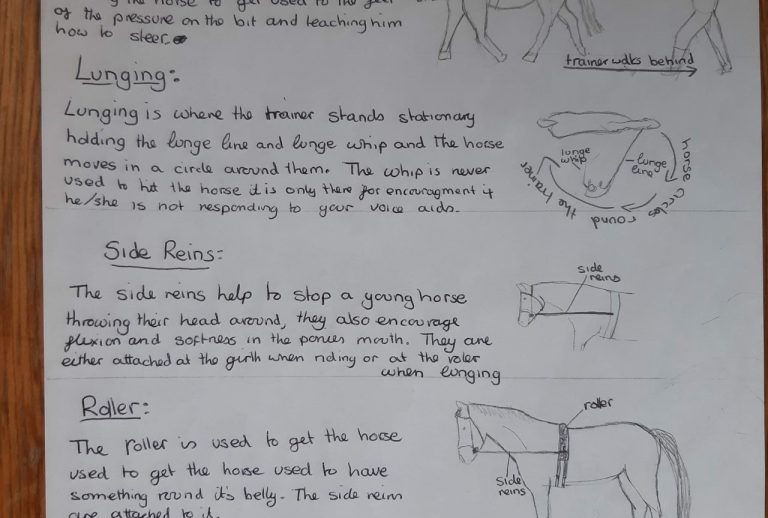 the horse to get used to the feel
of the pressure on the bit and teaching him
how to steer.
trainer walks behind
Lunging:
Lunging is where the trainer stands stationary
holding the lunge line and lunge whip and the horse
moves in a circle around them. The whip is never
used to hit the horse it is only there for encouragment if
he/she is not responding to your voice aids.
lunge
whip
lunge
line
horse circles round the trainer
Side Reins:
The side reins help to stop a young horse
throwing their head around, they also encourage
flexion and softness in the ponies mouth. They are
either attached at the girth when riding or at the roler
when lunging
side
reins
Roller:
The roller is used to get the horse
used to get the horse used to have
something round it's belly. The side reins
are attached to it.
roller
side
reins